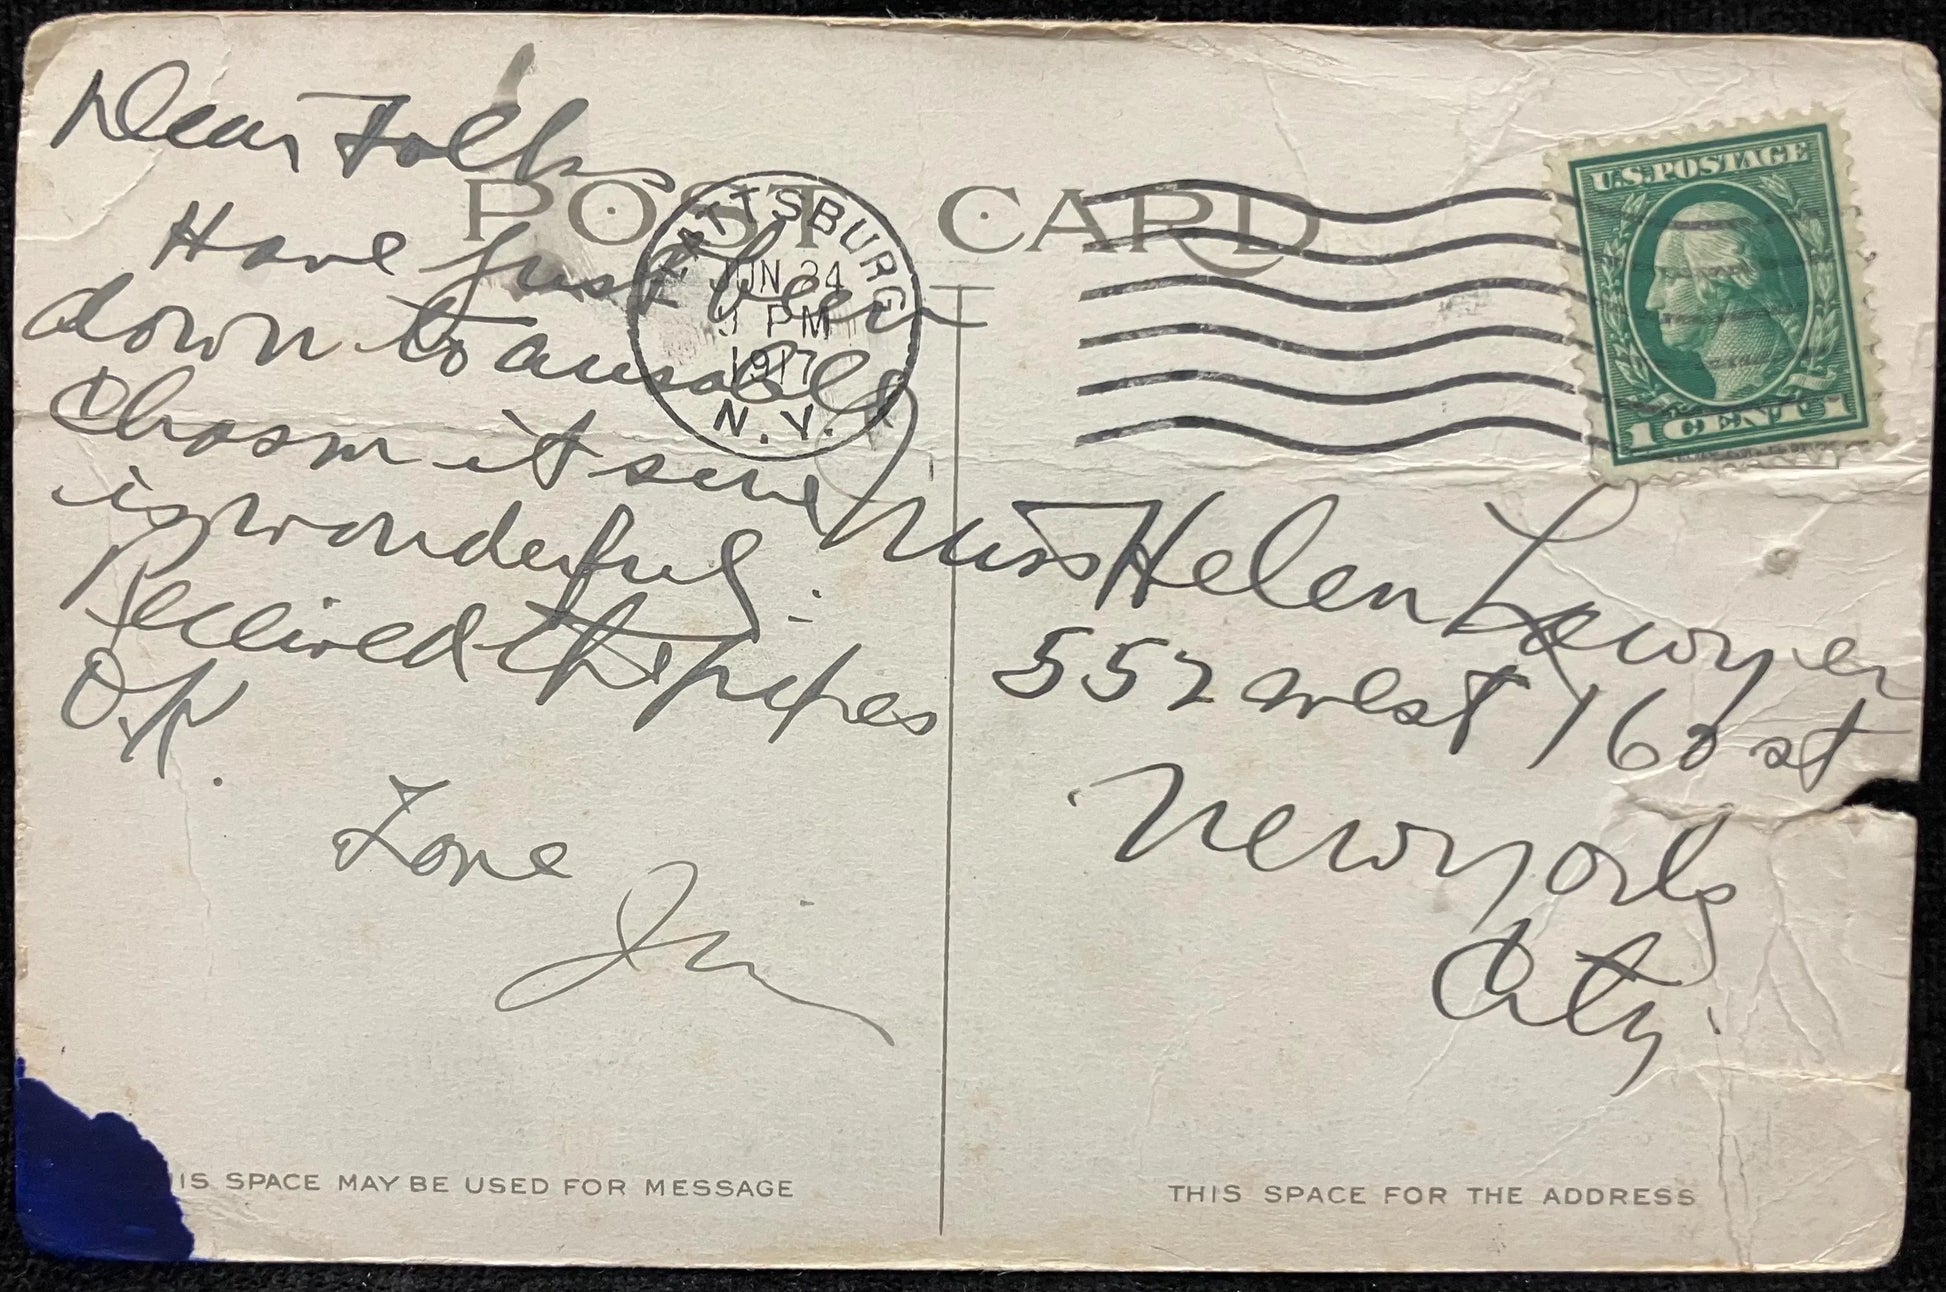 Dear Folks
Have just been
down to ausable
Chasm it sure
is wonderful.
Received the pipes
O.K.
Love
Jim
POST CARD
PLATTSBURG
JUN 24
PM
1917
N.Y.
U.S. POSTAGE
1 CENT 1
Miss Helen Lawyer
552 west 160 st
New york
City.
IS SPACE MAY BE USED FOR MESSAGE
THIS SPACE FOR THE ADDRESS